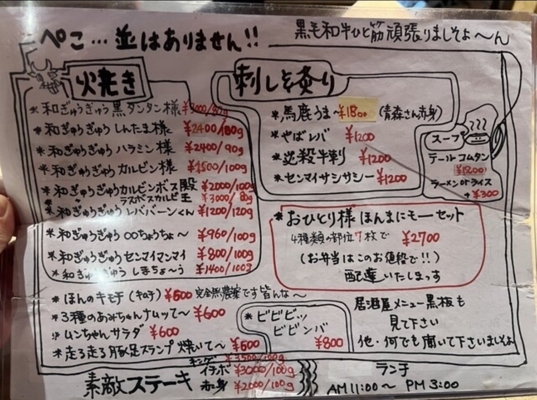 ペこ…並はありません!!
黒毛和牛ひと筋頑張りましそょ〜ん
火焼き
*和ぎゅうぎゅう黒タンタン様
*和ぎゅうぎゅうしんたま様 ¥2400/80g
*和ぎゅうぎゅうハラミン様 ¥2400/90g
*和ぎゅうぎゅうカルビン様 ¥1500/100g
*和ぎゅうぎゅうカルビンボス殿 ¥2000/100g
ラスボスカルビ王 ¥3000/80g
*和ぎゅうぎゅうレババーンくん ¥1200/120g
*和ぎゅうぎゅう〇〇ちょちょ〜 ¥960/100g
*和ぎゅうぎゅうセンマイマンマイ ¥800/100g
*和ぎゅうぎゅうしまちょ〜う ¥1400/100g
*ほんのキモチ(キムチ) ¥500 完全無農薬です皆んな〜
*3種のおみちゃんナムッて〜 ¥600
*ムンちゃんサラダ ¥600
*走る走る豚足スランプ焼いて〜 ¥500
刺しを炙り
*馬鹿うま〜¥1800(青森さん赤身)
*やばレバ ¥1200
*必殺牛刺 ¥1200
*センマイサンサシー ¥1200
スープ
テールコムタン
¥1200
ラーメンorライス
+¥300
*おひとり様ほんまにモーセット
4種類の部位7枚で ¥2700
(お弁当はこのお値段で!!)
配達いたしまっす
*ビビビッ
ビビンバ
¥800
居酒屋メニュー黒板も
見て下さい
他・何でも聞いて下さいませょ
素敵ステーキ
キング ¥3500/100g
イチボ ¥3000/100g
赤身 ¥2000/100g
ランチ
AM11:00〜PM3:00